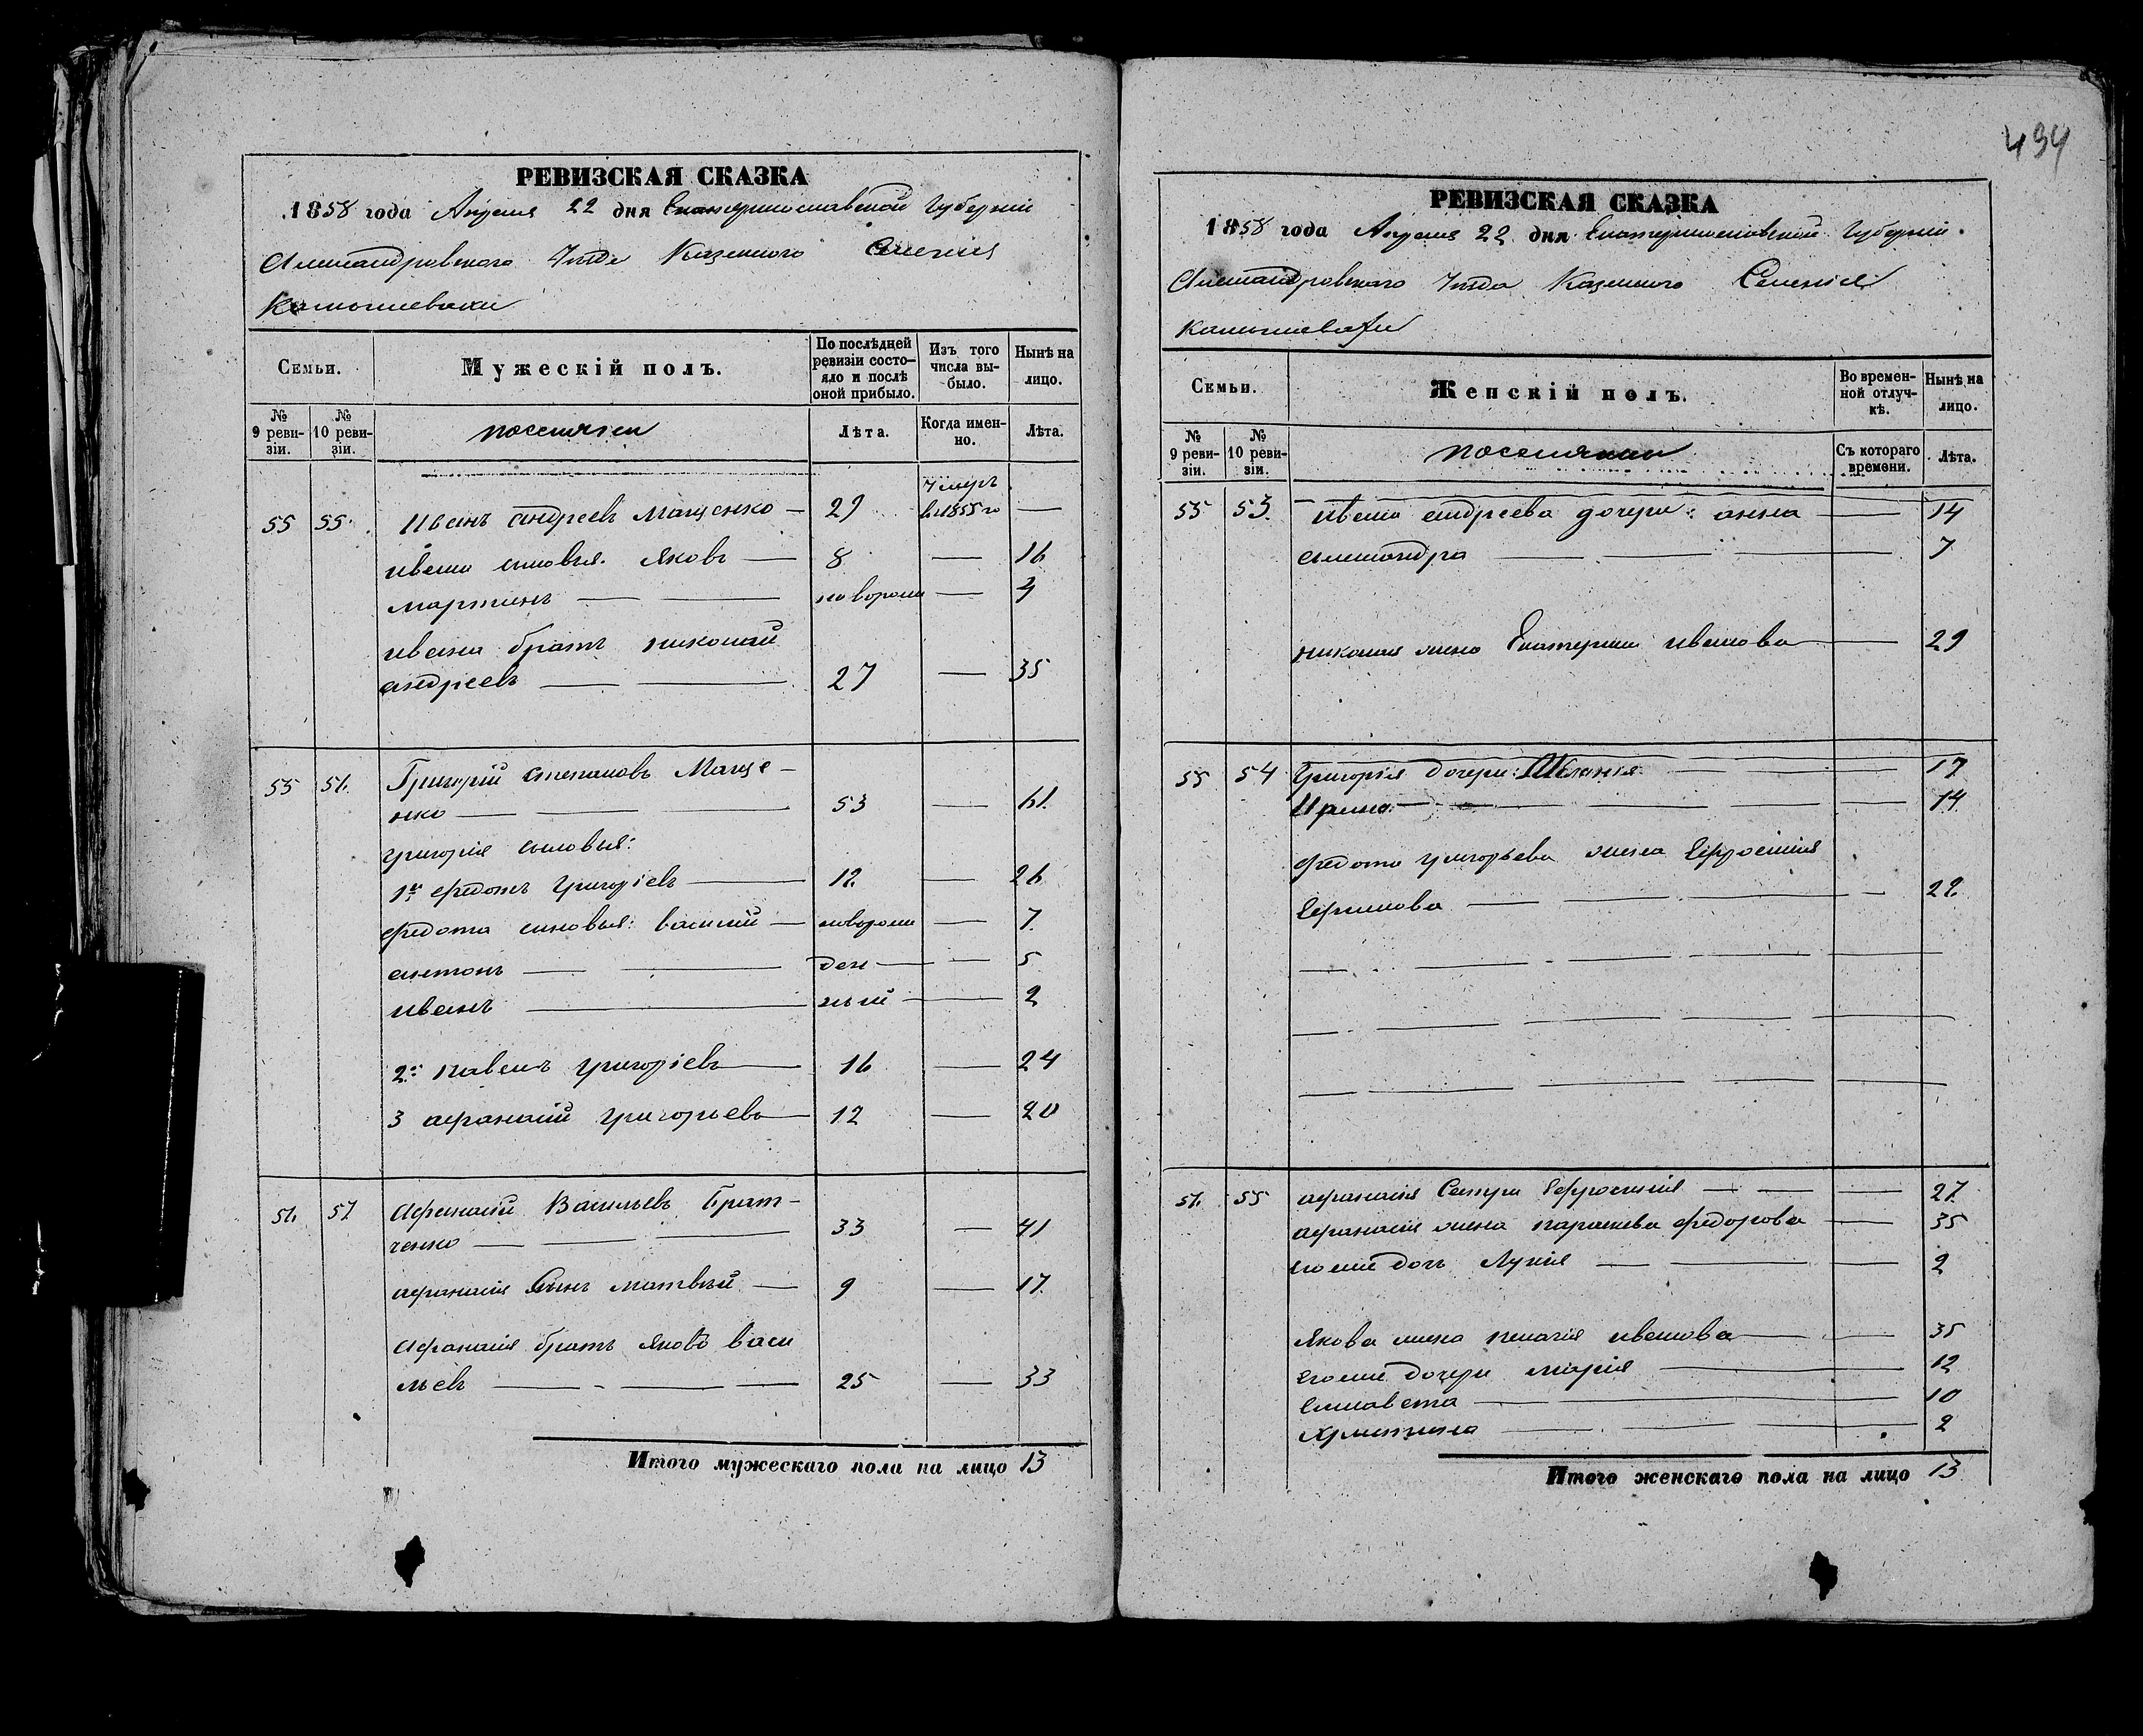 494
РЕВИЗСКАЯ СКАЗКА
1858 года Апреля 22 дня Екатеринославской Губернiи
Александровского Уезда Казенного Селения
Камышевахи
Семьи.
Мужескiй полъ.
По послѣдней ревизiи состо-
яло и послѣ оной прибыло.
Изъ того числа вы-
было.
Нынѣ на лицо.
№ 9 реви-
зiи.
№ 10 реви-
зiи.
поселяни
Лѣта.
Когда имен-
но.
Лѣта.
55 55 Иванъ андреевъ Мащенко — 29 умеръ в 1855 го —
ивана сыновья. Яковъ — 8 — 16
мартинъ — — новорожи — 4
ивана братъ николай
андреевъ — — 27 — 35
55 56. Григорiй степановъ Маще-
нко — — 53 — 61.
григорiя сыновья:
1й федотъ григорiевъ — 18. — 26
федота сыновья: василiй — новорожи — 7.
антонъ — — ден — — 5
иванъ — ный — 2
2й павелъ григорiевъ — 16 — 24
3 афанасiй григорьевъ — 12 — 20
56. 57 Афанасiй Васильевъ Брат-
ченко — — — 33 — 41
афанасiя Сынъ матвѣй — 9 — 17.
афанасiя братъ яковъ васи
льевъ — - — — 25 — 33
Итого мужескаго пола на лицо 13
РЕВИЗСКАЯ СКАЗКА
1858 года Апреля 22 дня Екатеринославской Губернiи.
Александровского Уезда Казенного Селенiя
камышевахи
Семьи.
Женскiй полъ.
Во времен-
ной отлуч-
кѣ.
Нынѣ на лицо.
№ 9 реви-
зiи.
№ 10 реви-
зiи.
поселянки
Съ котораго времени.
Лѣта.
55 53. ивана андреева дочери: анна — 14
александра — — — 7
николая жена Екатерина иванова — 29
55 54 григорiя дочери: Меланiя — — 17
Ирина — — — — 14.
федота григорьева жена Ефросинiя
Ефимова — — — — 22.
56. 55 афанасiя Сестра Ефросинiя — — — 27.
афанасiя жена парасева федорова — 35
его же дочь Лукiя — — — 2
Якова жена пелагiя иванова — — 35
его же дочери марiя — 12
елисавета — — 10
Христина — — — 2
Итого женскаго пола на лицо 13